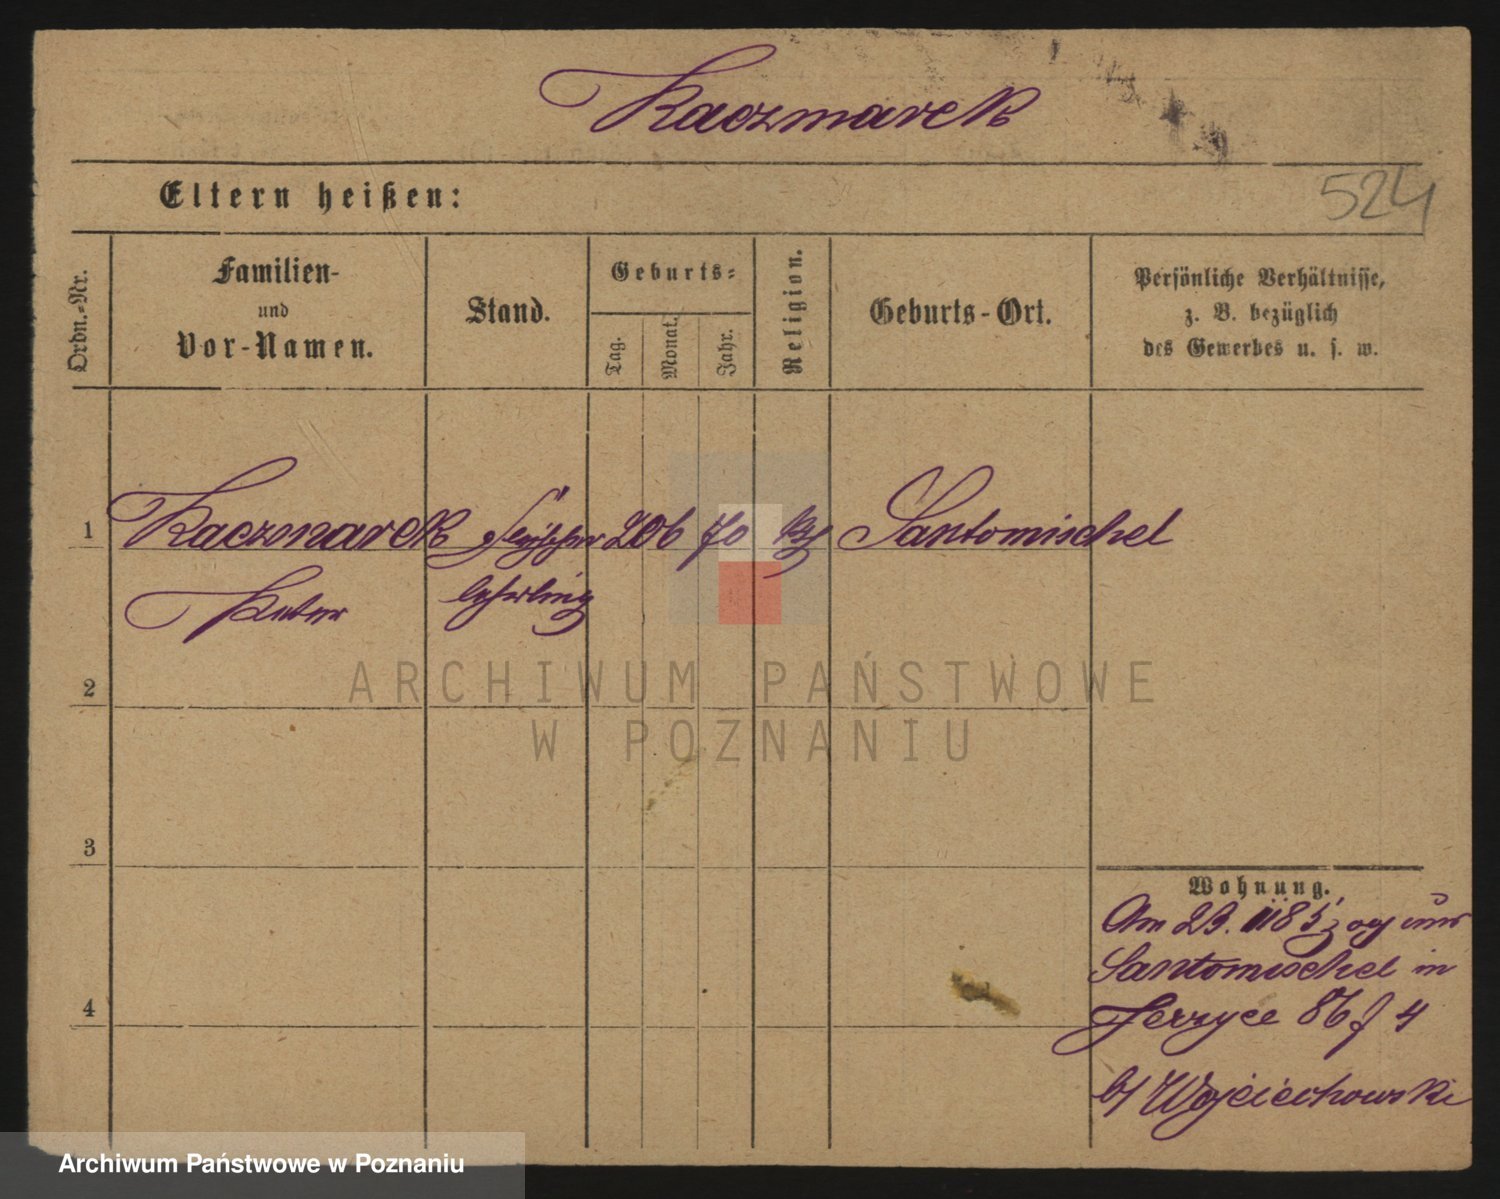 Kaczmarek
Eltern heißen:
524
Ordn.-Nr.
Familien-
und
Vor-Namen.
Stand.
Geburts-
Tag.
Monat.
Jahr.
Religion.
Geburts-Ort.
Persönliche Verhältnisse,
z. B. bezüglich
des Gewerbes u. s. w.
1
Kaczmarek Fleischer 20 6 70 kth Santomischel
Peter lehrling
ARCHIWUM PAŃSTWOWE
W POZNANIU
2
3
4
Wohnung.
Am 23. 85 zog von
Santomischel in
Jerzyce 86 f 4
b/ Wojciechowski
Archiwum Państwowe w Poznaniu